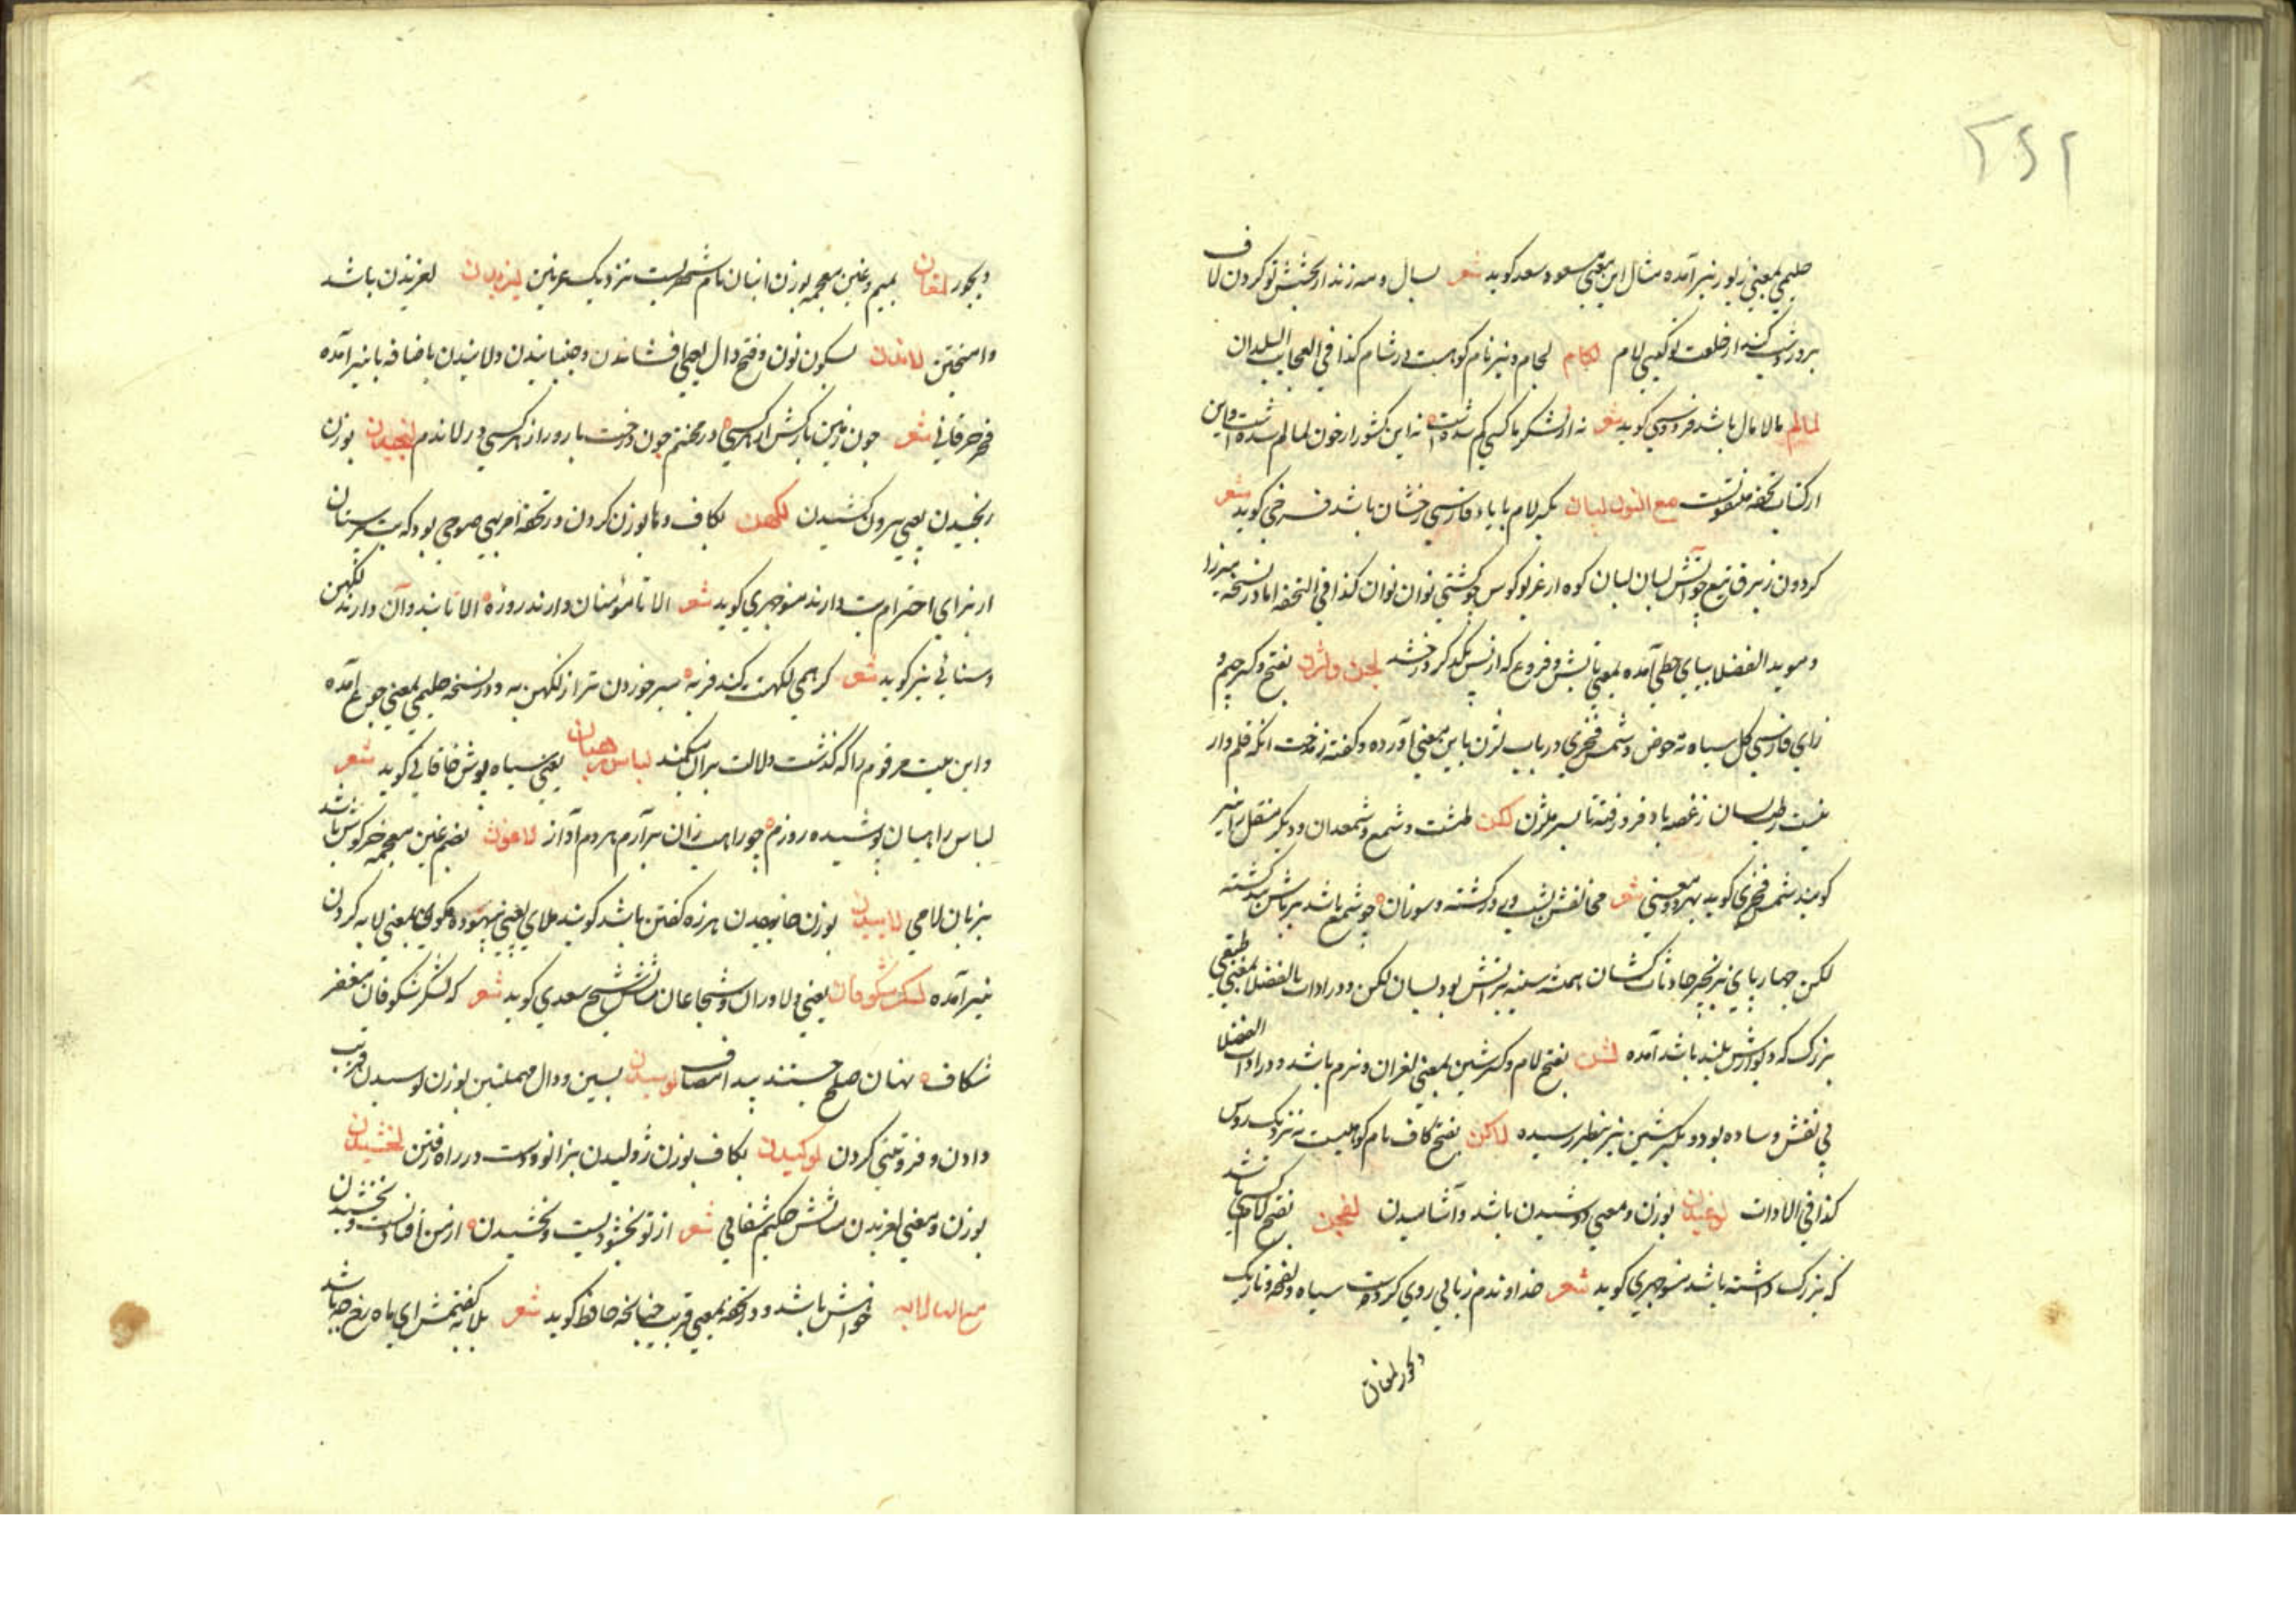 ۲۶۲
حلیمی بمعنی زیور نیز آمده مثال این معنی مسعود سعد کوید شعر بسال و مه زند از بخشش تو کردون لاف
بروز و شب کند از خلعت تو کیتی لام لکام لجام و نیز نام کوهیست در شام کذا فی العجایب البلدان
لمالم مالامال باشد فردوسی کوید شعر نه از لشکر ما کسی کم شدست نه این کشور از خون لمالم شدست و این
از کتاب تحفه منقولست مع النون لیان بکسر لام با یاء فارسی رخشان باشد فرخی کوید شعر
کردون ز برق تیغ چو آتش لیان لیان کوه از غریو کوس چو کشتی نوان نوان کذا فی التحفه اما در نسخه میرزا
و موید الفضلا بیای حطی آمده بمعنی تابش و فروغ که از پس یکدیکر درخشد لجن ولژن بفتح و کسر جیم و
زای فارسی کل سیاه ته حوض و شمس فخری در باب لژن باین معنی آورده و کفته ز مدحت آنکه قلم وار
نیست رطب لسان ز غصه باد فرو رفته تا بسر بلژن لکن طشت و شمع و شمعدان و دیکر منقل را نیز
کویند شمس فخری کوید بهر دو معنی شعر مخالفش بشب در کشته و سوزان چو شمع باشد سرباش در کشته
لکن چهارپای زنجیر حادثات کشان همیشه سینه پرآتش بود بسان لکن و در ادات الفضلا بمعنی طبقی
بزرک که دیوارش بلند باشد آمده لشن بفتح لام و کسر شین بمعنی لغزان و نرم باشد و در ادات الفضلا
بی نقش و ساده بود و بکسر شین نیز بنظر رسیده لاکن بفتح کاف نام کوهیست نزدیک روس
کذا فی الادات لوغیدن بوزن و معنی دوشیدن باشد و آشامیدن لفجن بفتح لام کسی باشد
که بزرک داشته باشد منوجهری کوید شعر خداوندم زبانی روی کردست سیاه و لفجن و تاریک
و بجور لمغان
و بجور لمغان بمیم و غین معجمه بوزن انبان نام شهریست نزدیک غزنین لیزیدن لغزیدن باشد
و آمیختن لاندن بسکون نون و فتح دال یعنی افشاندن و جنبانیدن و لانیدن باضافه یا نیز آمده
فخر جرقانی شعر چون زمین بارکش از هر کسی در محنتم چون درخت بارور از هر کسی در لاندم لنجیدن بوزن
رنجیدن یعنی بیرون کشیدن لکهن بکاف و ها بوزن کردن در تحفه امر بی صوحی بود که بت پرستان
از برای احترام بت دارند منوچهری کوید شعر الا تا مؤمنان دارند روزه الا تا هندوان دارند لکهن
و سنائی نیز کوید شعر کر همی لکهنت کند فربه سیر خوردن ترا ز لکهن به و در نسخه حلیمی بمعنی جوع آمده
و این بیت مرقوم را که کذشت دلالت بر آن میکند لباس رهبان یعنی سیاه پوش خاقانی کوید شعر
لباس راهبان پوشیده روزم چو راهب زان برآرم هر دم آواز لاغون بضم غین معجمه خرکوش باشد
بزبان لامی لاییدن بوزن خاییدن هرزه کفتن باشد کویند ملای یعنی بیهوده مکوی و بمعنی لابه کردن
نیز آمده لشکر شکوفان یعنی دلاوران و شجاعان مثالش شیخ سعدی کوید شعر که لشکر شکوفان مغفر
شکاف نهان صلح جستند و پیدا مصاف لوسیدن بسین و دال مهملتین بوزن بوسیدن فریب
دادن و فروتنی کردن لوکیدن بکاف بوزن ژولیدن بزانو و دست در راه رفتن لخشیدن
بوزن و معنی لغزیدن مثالش حکیم شفائی شعر از تو بخشودنیست و بخشیدن از من افتادنست و لخشیدن
مع الهاء لابه خواهش باشد و در تحفه بمعنی فریب چنانچه حافظ کوید شعر بلابه کفتمش ای ماه رخ چه باشد